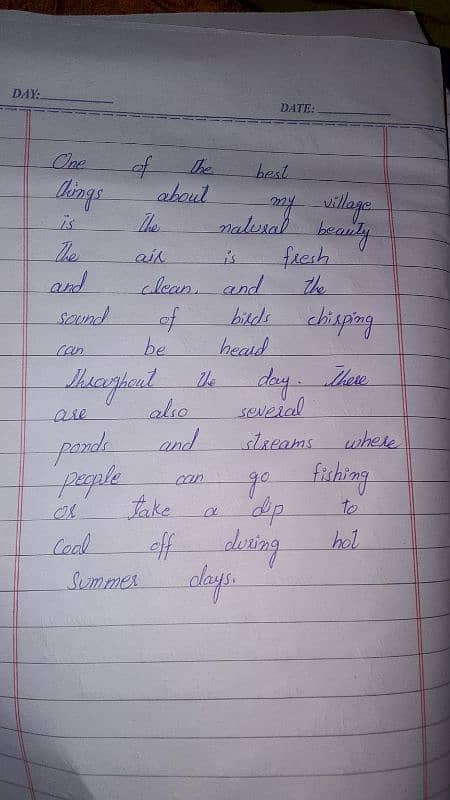 DAY:
DATE:
One of the best
things about my village
is the natural beauty
The air is fresh
and clean. and the
sound of birds chirping
can be heard
throughout the day. There
are also several
ponds and streams where
people can go fishing
or take a dip to
Cool off during hot
Summer days.